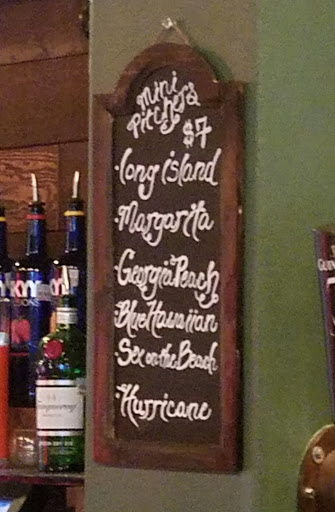 Mini
Pitchers
$7
·Long island
·Margarita
·Georgia Peach
·Blue Hawaiian
·Sex on the Beach
·Hurricane